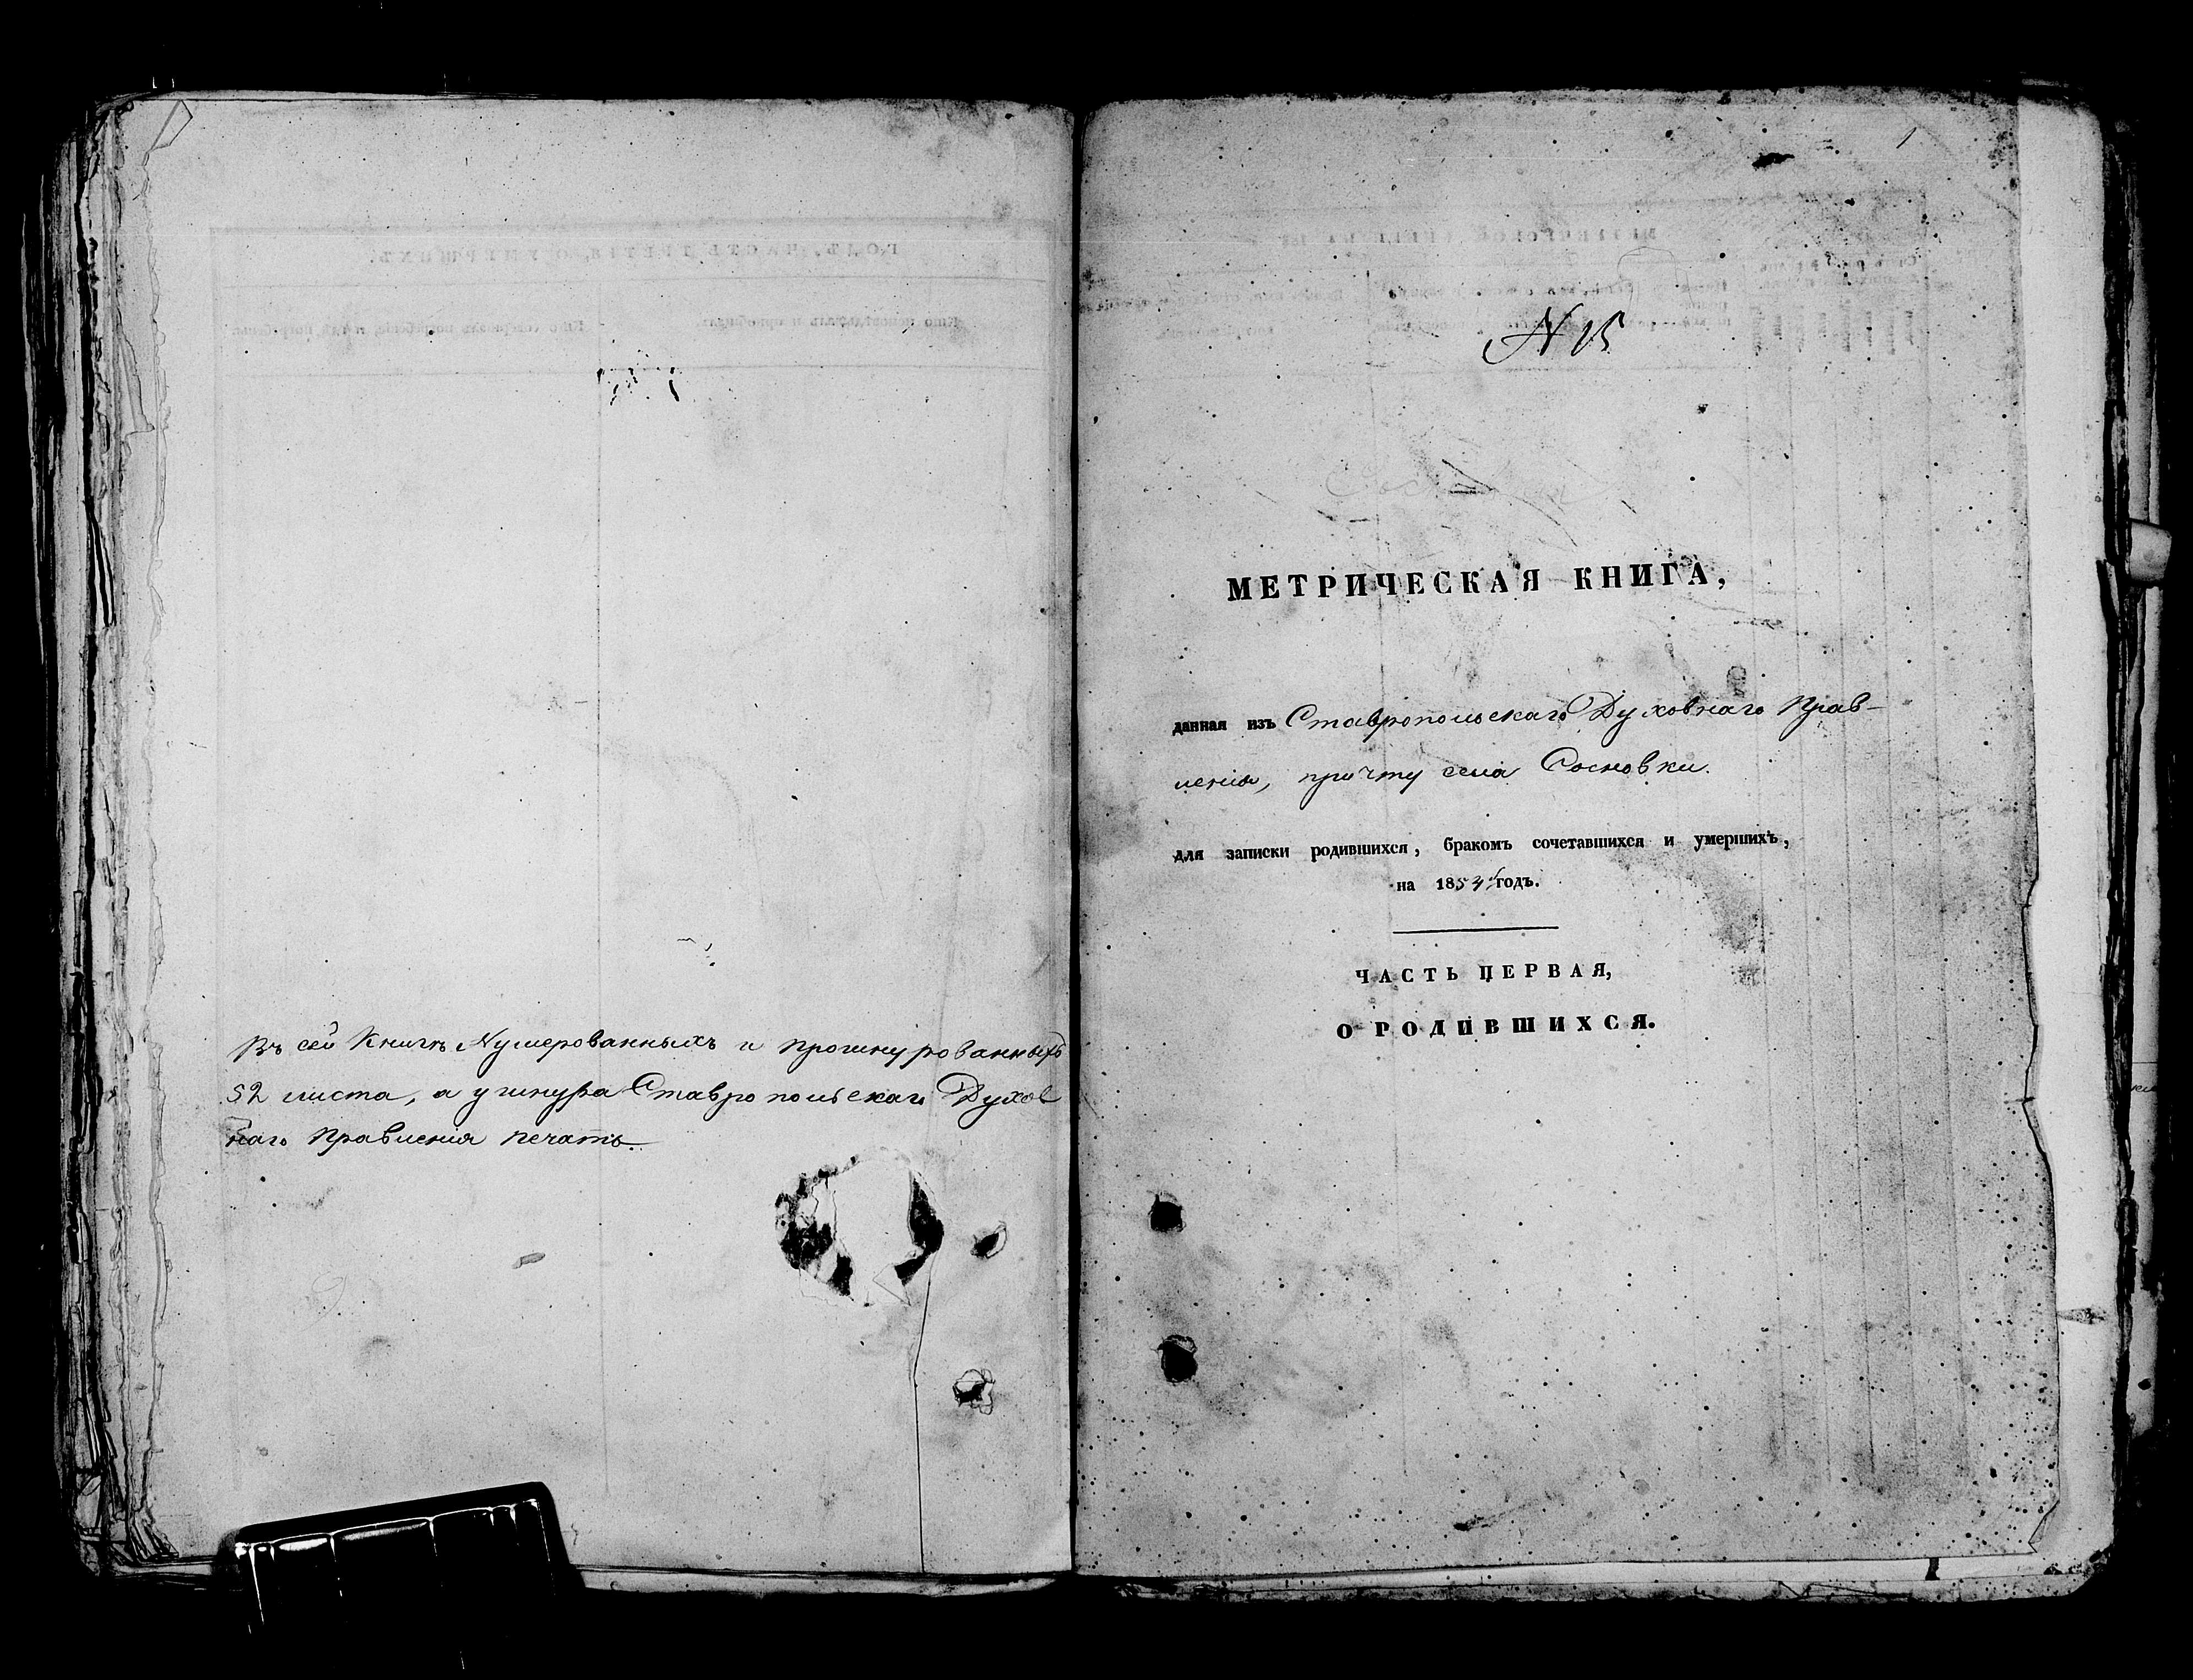 Въ сей Книгѣ Нумерованныхъ и прошнурованныхъ
52 листа, а у шнура Ставропольскаго Духов
наго Правленія печать.
1
N 15
МЕТРИЧЕСКАЯ КНИГА,
данная изъ Ставропольскаго Духовнаго Прав-
ленія, причту села Сосновки.
для записки родившихся, бракомъ сочетавшихся и умершихъ,
на 1854 годъ.
ЧАСТЬ ПЕРВАЯ,
О РОДИВШИХСЯ.